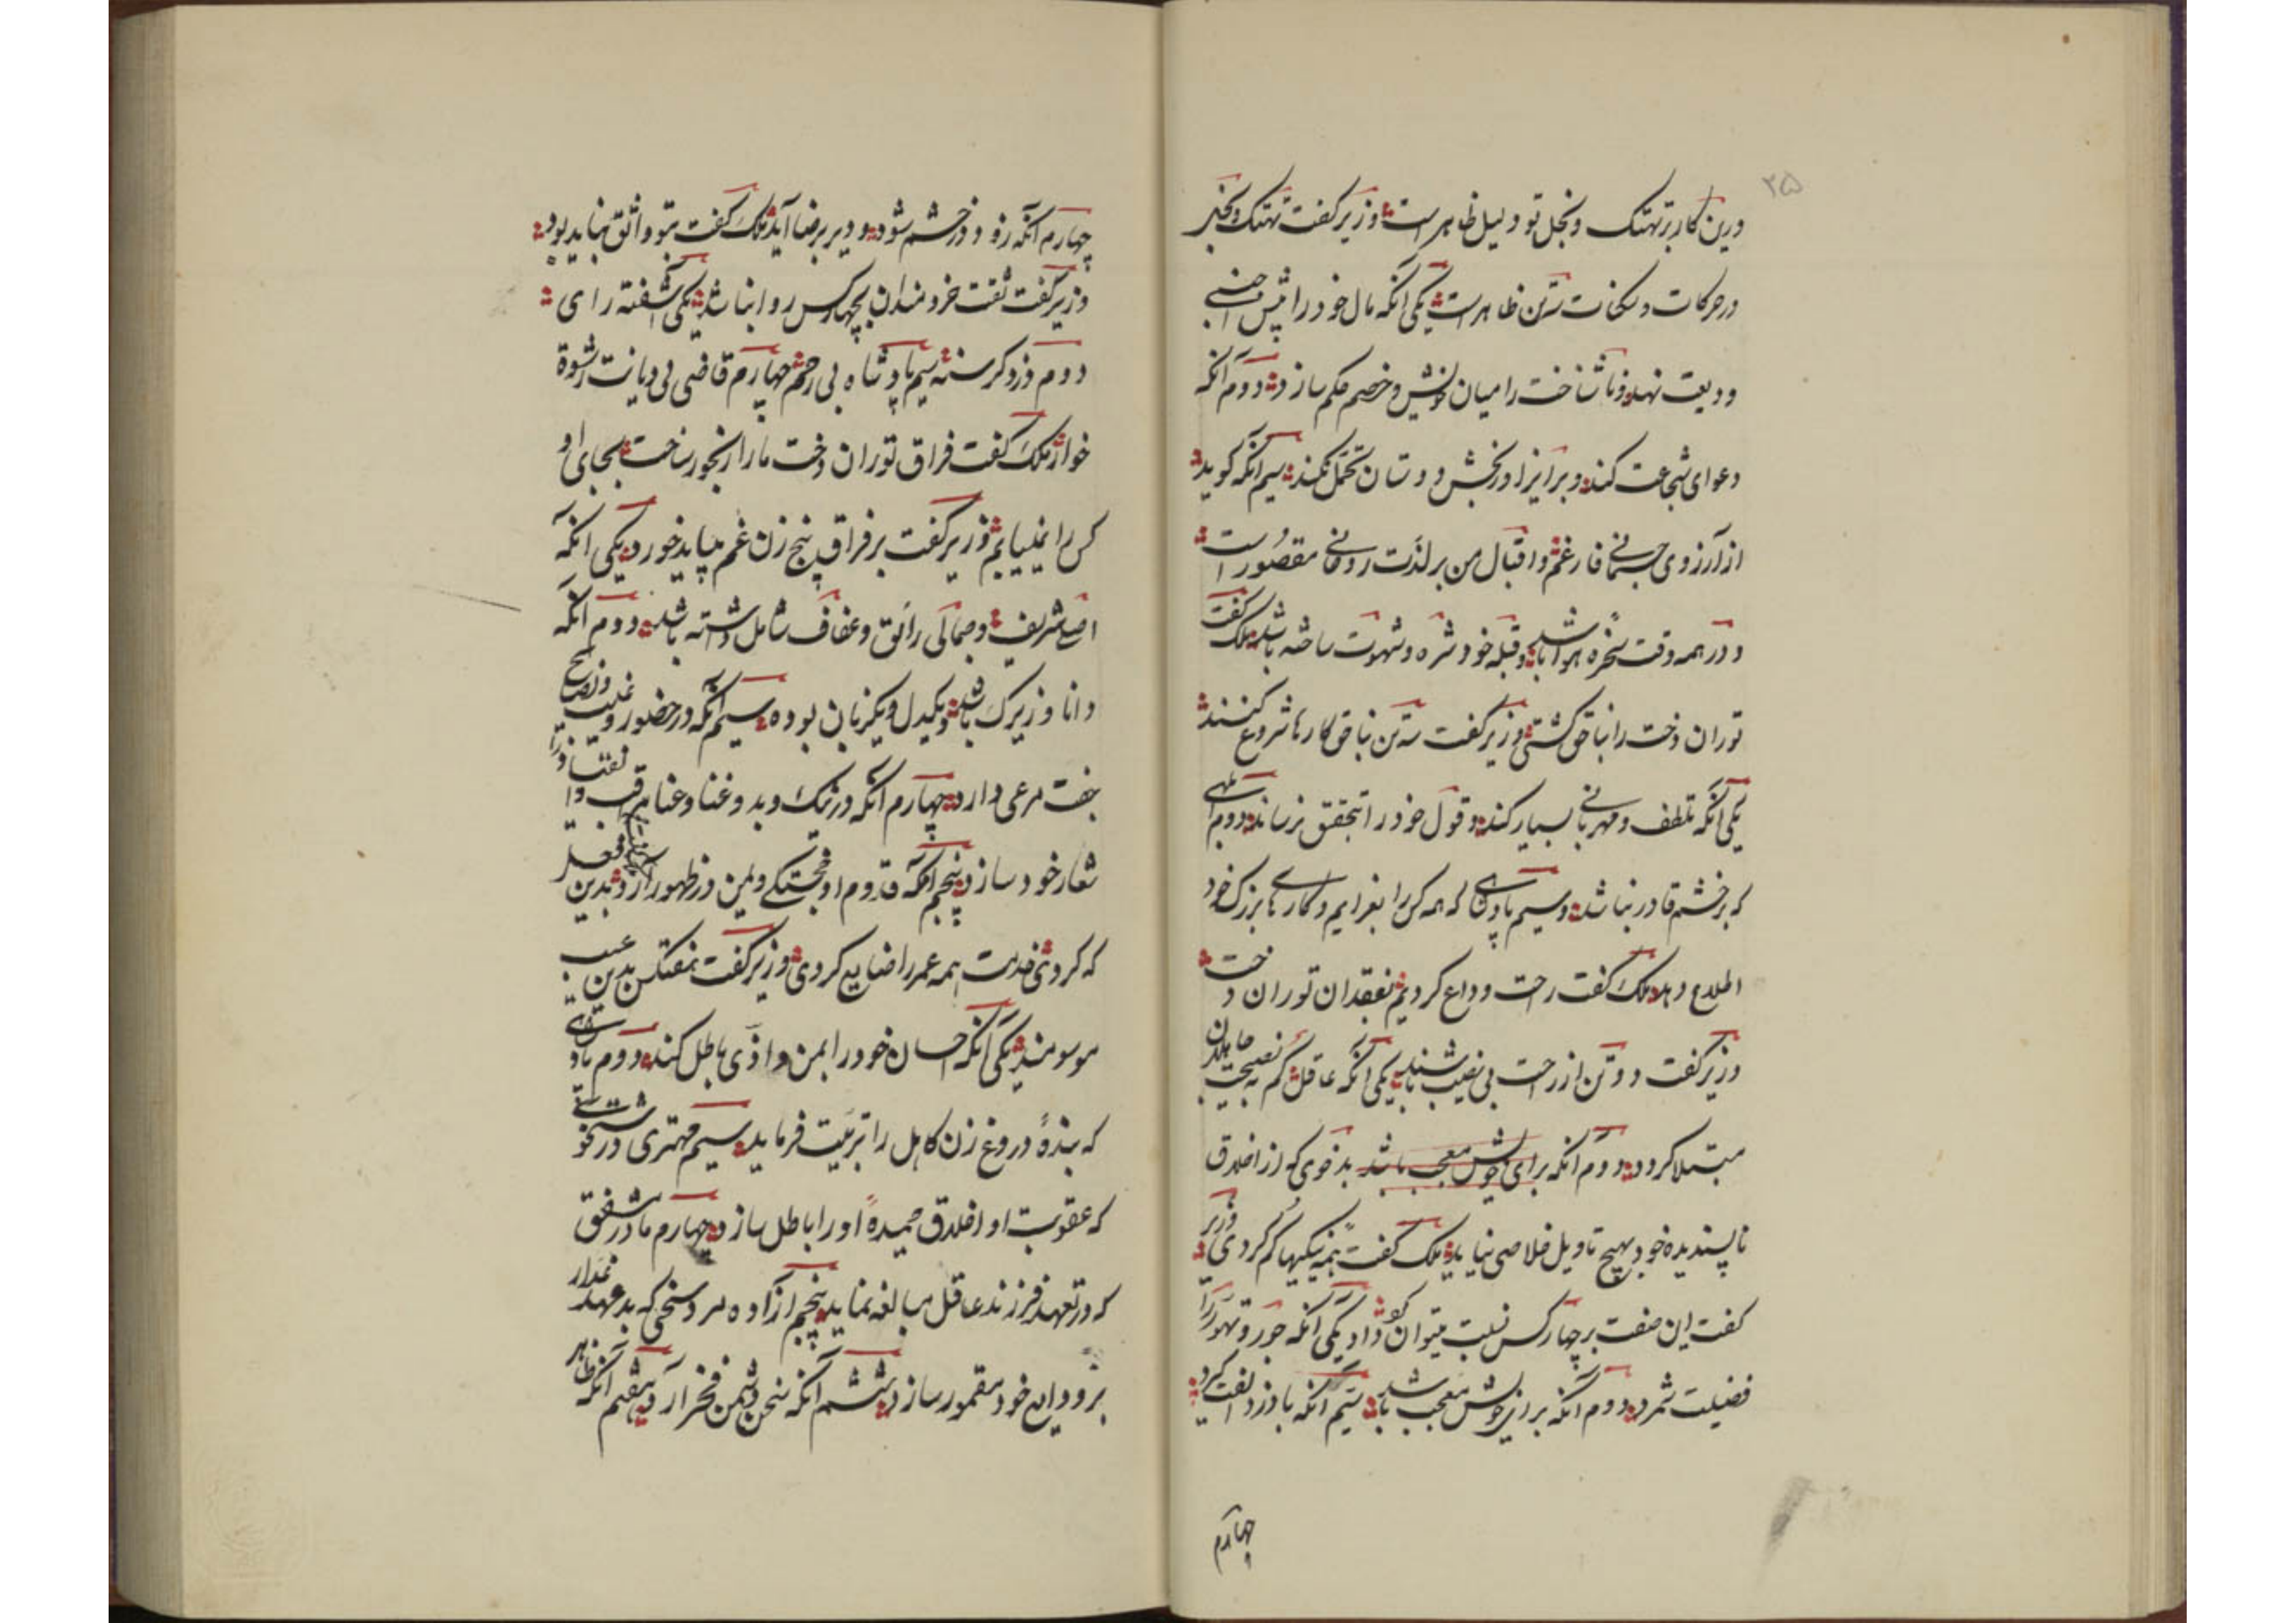 ۲۵
درین کار بر تهتک و تجبر تو دلیل ظاهر است وزیر گفت تهتک و تجبر
در حرکات و سکنات سه تن ظاهر است یکی آنکه مال خود را پیش اجنبی
ودیعت نهد و ناشناخت را میان خویش و خصم حکم سازد دوم آنکه
دعوای شجاعت کند و بر ایذا و رنجش دوستان تحمل نکند سیم آنکه گوید
از آرزوی جسمانی فارغم و اقبال من بر لذت روحانی مقصور است
و در همه وقت سخره هوا باشد و قبله خود شره و شهوت ساخته باشد ملک گفت
توران دخت را بناحق کشتی وزیر گفت سه تن بناحق کارها شروع کنند
یکی آنکه تلطف و مهربانی بسیار کند و قول خود را بتحقق نرساند دوم
که بر خشم قادر نباشد و سیم پادشاهی که همه کس را بفرایم و کارهای بزرگ خود
اطلاع دهد ملک گفت راحت وداع کردیم بفقدان توران دخت
وزیر گفت دو تن از راحت بی نصیب باشند یکی آنکه عاقل کم به نصیحت جاهلان
مبتلا گردد دوم آنکه برای خویش معجب باشد بدخوی که از اخلاق
ناپسندیده خود بهیچ تاویل خلاصی نیابد ملک گفت همه نیکیها گم کردی وزیر
گفت این صفت بر چهار کس نسبت میتوان داد یکی آنکه جور و تهور را
فضیلت شمرد دوم آنکه برای خویش معجب باشد سیم آنکه با دزد الفت گیرد
چهارم
چهارم آنکه زود در خشم شود و دیر برضا آید ملک گفت بتو واثق نباید بود
وزیر گفت ثقت خردمندان بچهار کس روا نباشد یکی آشفته رای
دوم دزد گرسنه سیم پادشاه بی رحم چهارم قاضی بی دیانت رشوة
خوار ملک گفت فراق توران دخت ما را رنجور ساخت بجای او
کس را نمییابیم وزیر گفت بر فراق پنج زن غم میباید خورد یکی آنکه
اصل شریف و جمالی رائق و عفاف شامل داشته باشد دوم آنکه
دانا و زیرک باشد و یکدل و یکزبان بوده سیم آنکه در حضور و غیبت و نصیح
جفت مرعی دارد چهارم آنکه در نیک و بد و غنا و عنا
شعار خود سازد پنجم آنکه قدوم او خجستگی و یمن در ظهور آرد بدین
که کردی خدمت همه عمر را ضایع کردی وزیر گفت هفتکس بدین عیب
موسومند یکی آنکه احسان خود را بمن و اذی باطل کند دوم پادشاهی
که بندهٔ دروغ زن کاهل را تربیت فرماید سیم مهتری درشتخو
که عقوبت او اخلاق حمیدهٔ او را باطل سازد چهارم مادر مشفق
که در تعهد فرزند عاقل مبالغه نماید پنجم آزاده مرد سخی که بدعهد غدار
بر ودایع خود مقصور سازد ششم آنکه سخن دشمن فخر آرد هفتم آنکه